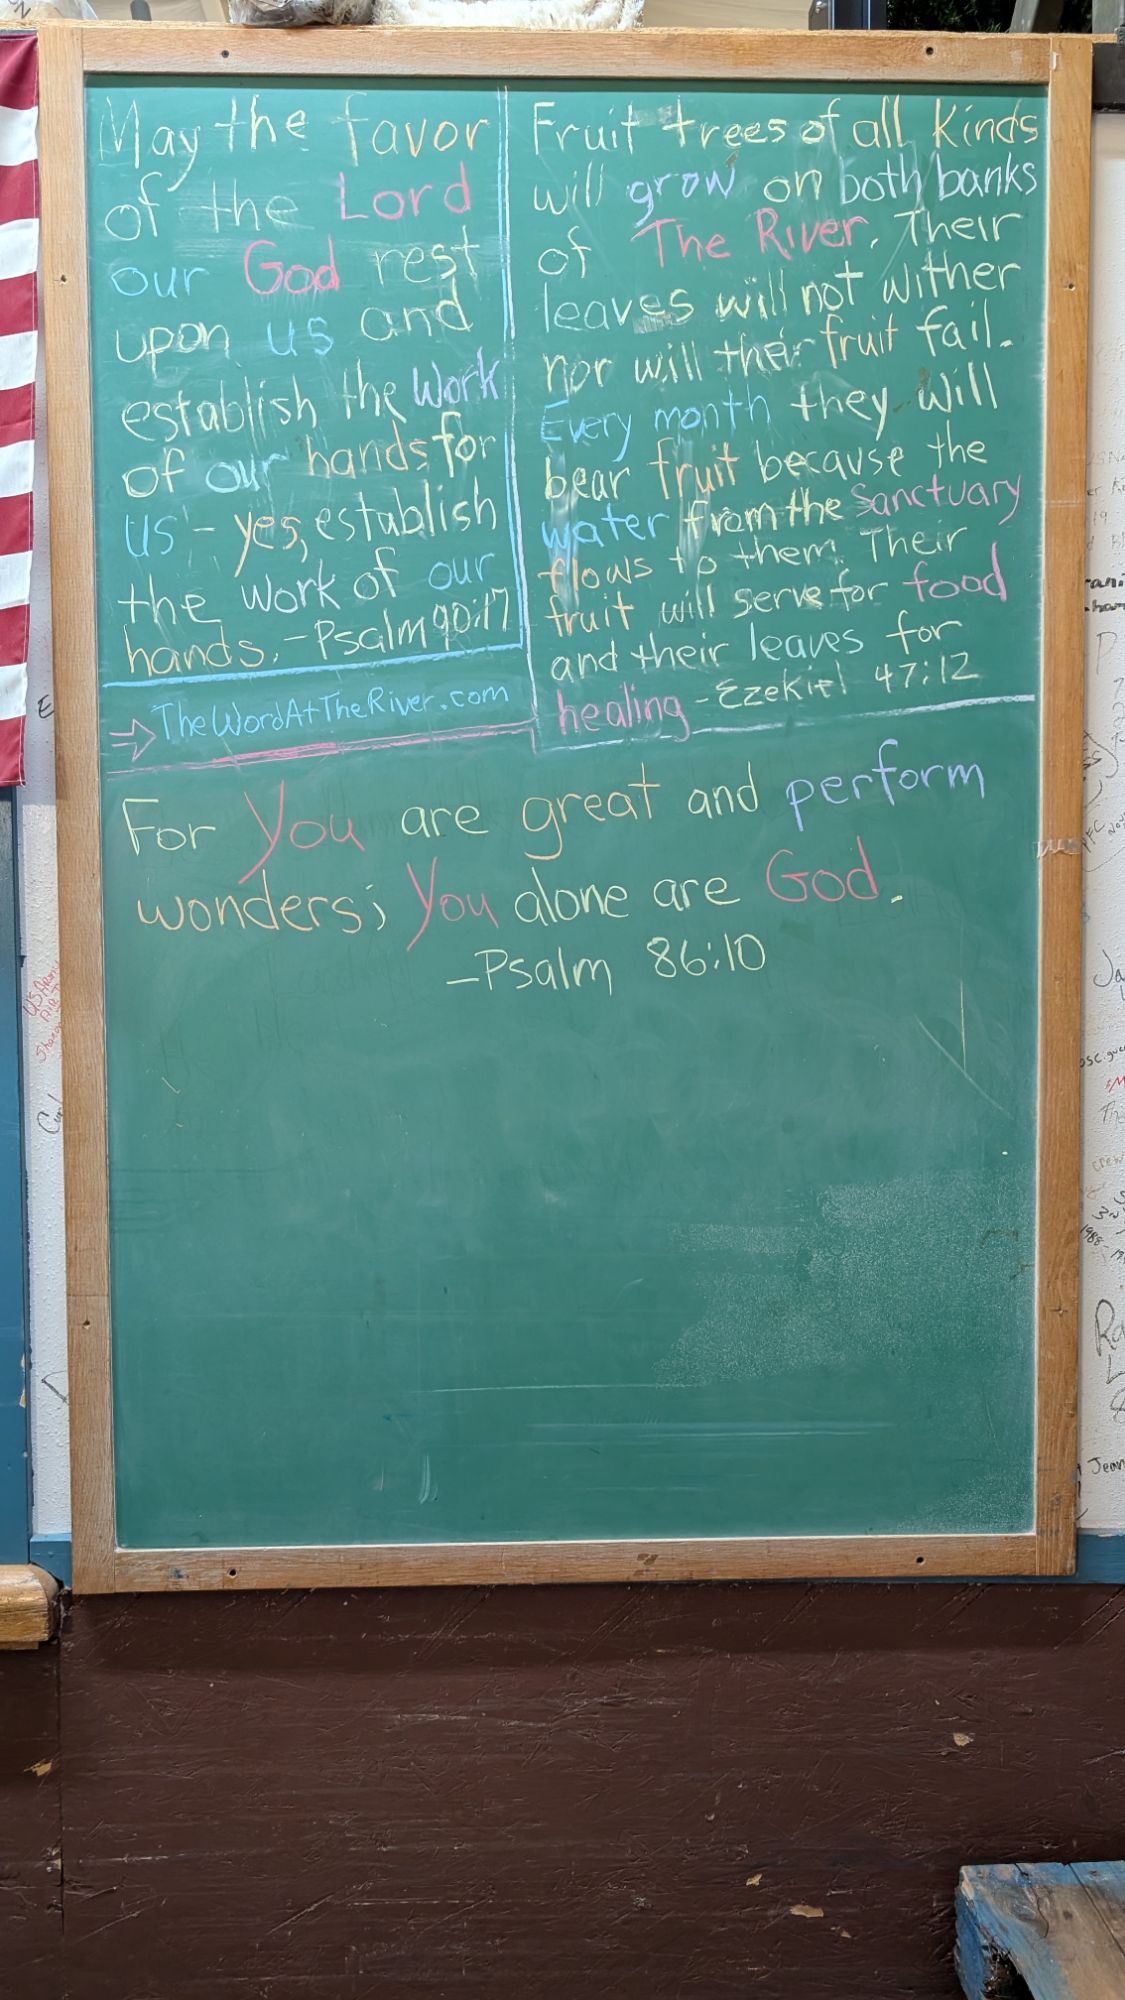 May the favor
of the Lord
our God rest
upon us and
establish the Work
of our hands for
us - yes, establish
the work of our
hands. - Psalm 90:17
→ TheWordAtTheRiver.com
Fruit trees of all Kinds
will grow on both banks
of The River. Their
leaves will not wither
nor will their fruit fail.
Every month they will
bear fruit because the
water from the Sanctuary
flows to them. Their
fruit will serve for food
and their leaves for
healing - Ezekiel 47:12
For You are great and perform
wonders; You alone are God.
- Psalm 86:10